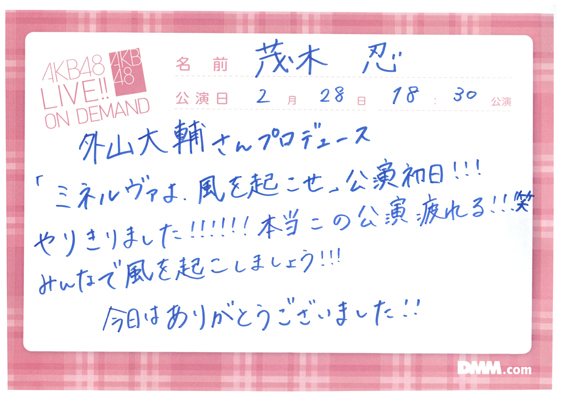 AKB48
LIVE!!
ON DEMAND
AKB
48
名前 茂木 忍
公演日 2月 28日 18:30 公演
外山大輔さんプロデュース
「ミネルヴァよ、風を起こせ」公演初日!!!
やりきりました!!!!!!本当この公演疲れる!!!笑
みんなで風を起こしましょう!!!
今日はありがとうございました!!
DMM.com